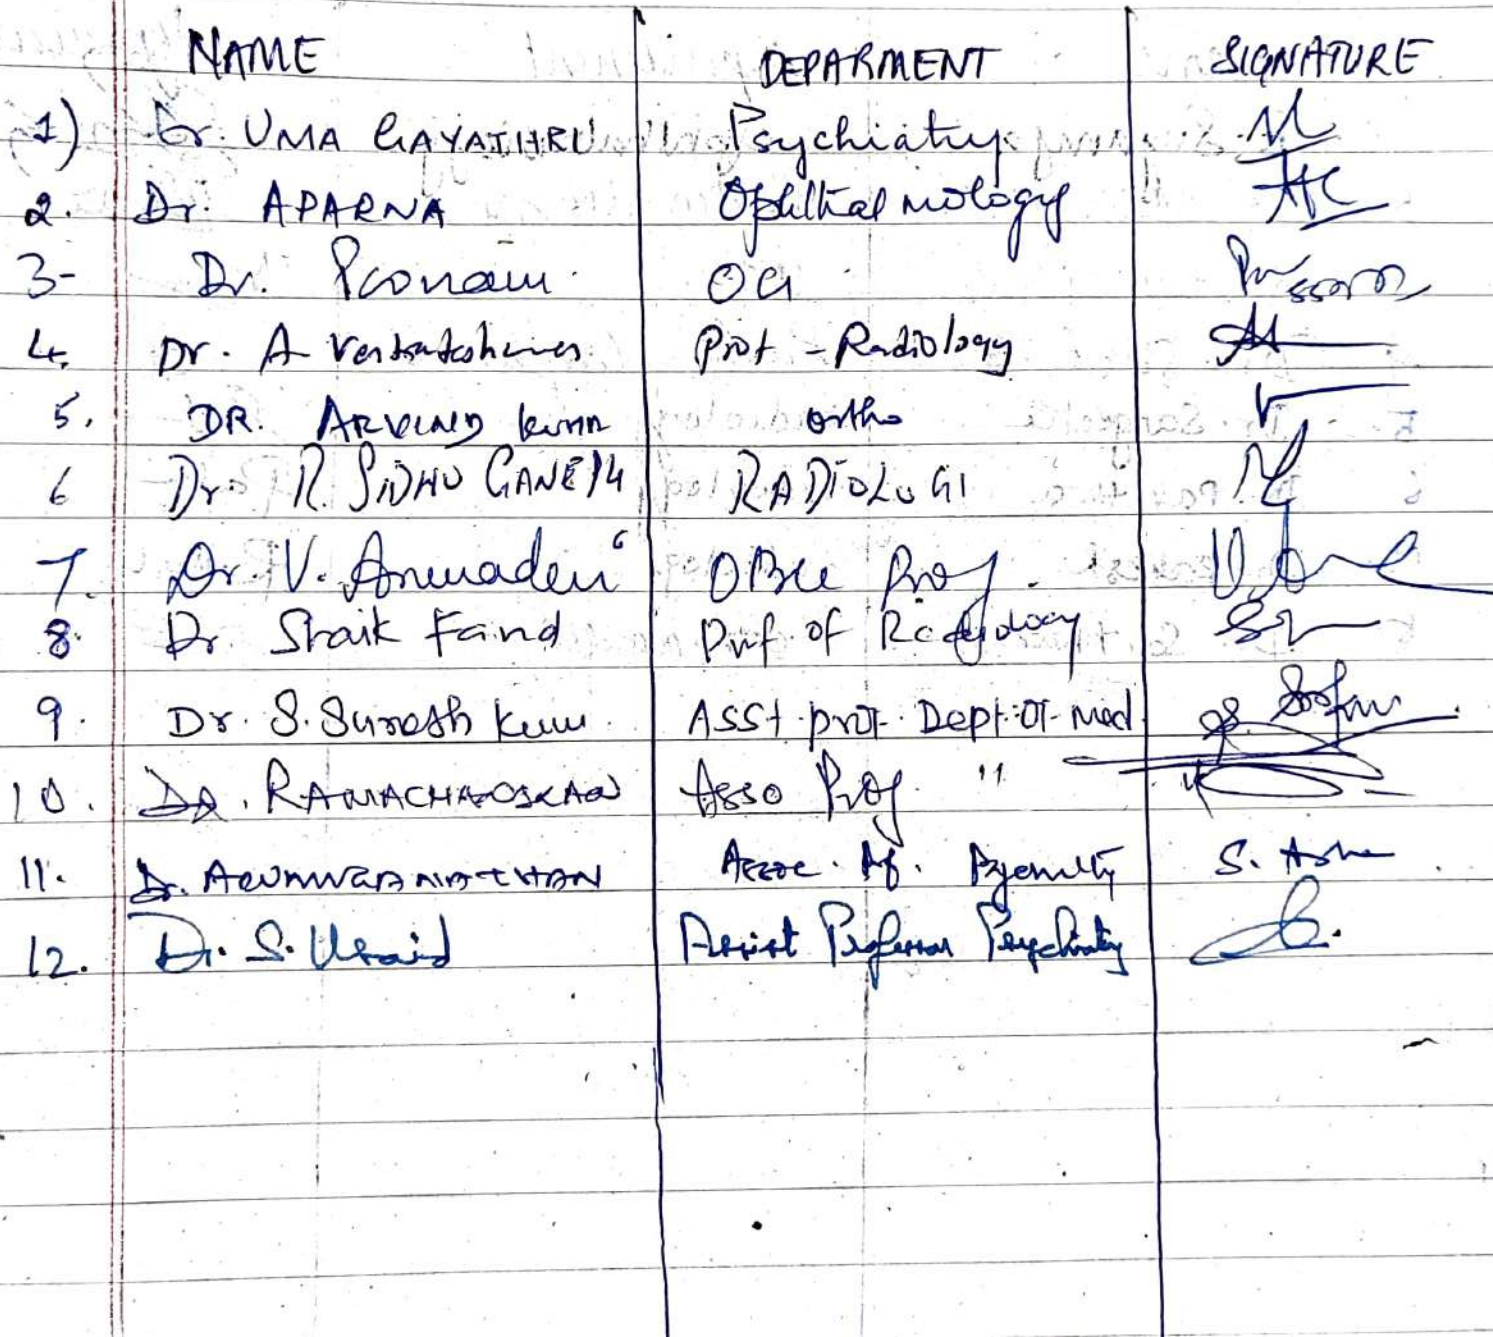 NAME DEPARMENT SIGNATURE
1) Dr. UMA GAYATHRI Psychiatry
2. Dr. APARNA Ophthalmology
3- Dr. Poonam OG
4. Dr. A Prof - Radiology
5. DR. ARVIND Kumar Ortho
6 Dr. R. SIDHU GANESH RADIOLOGI
7. Dr. V. Prof.
8. Dr Shaik Farid Prof of Radiology
9. Dr. S. Suresh Kumar Asst prof. Dept. of Med
10. Dr. RAMACHANDRAN Asso Prof. "
11. Dr. Assoc. Prof. S. Asha
12. Dr. S. Ubaid Assist Professor Psychiatry